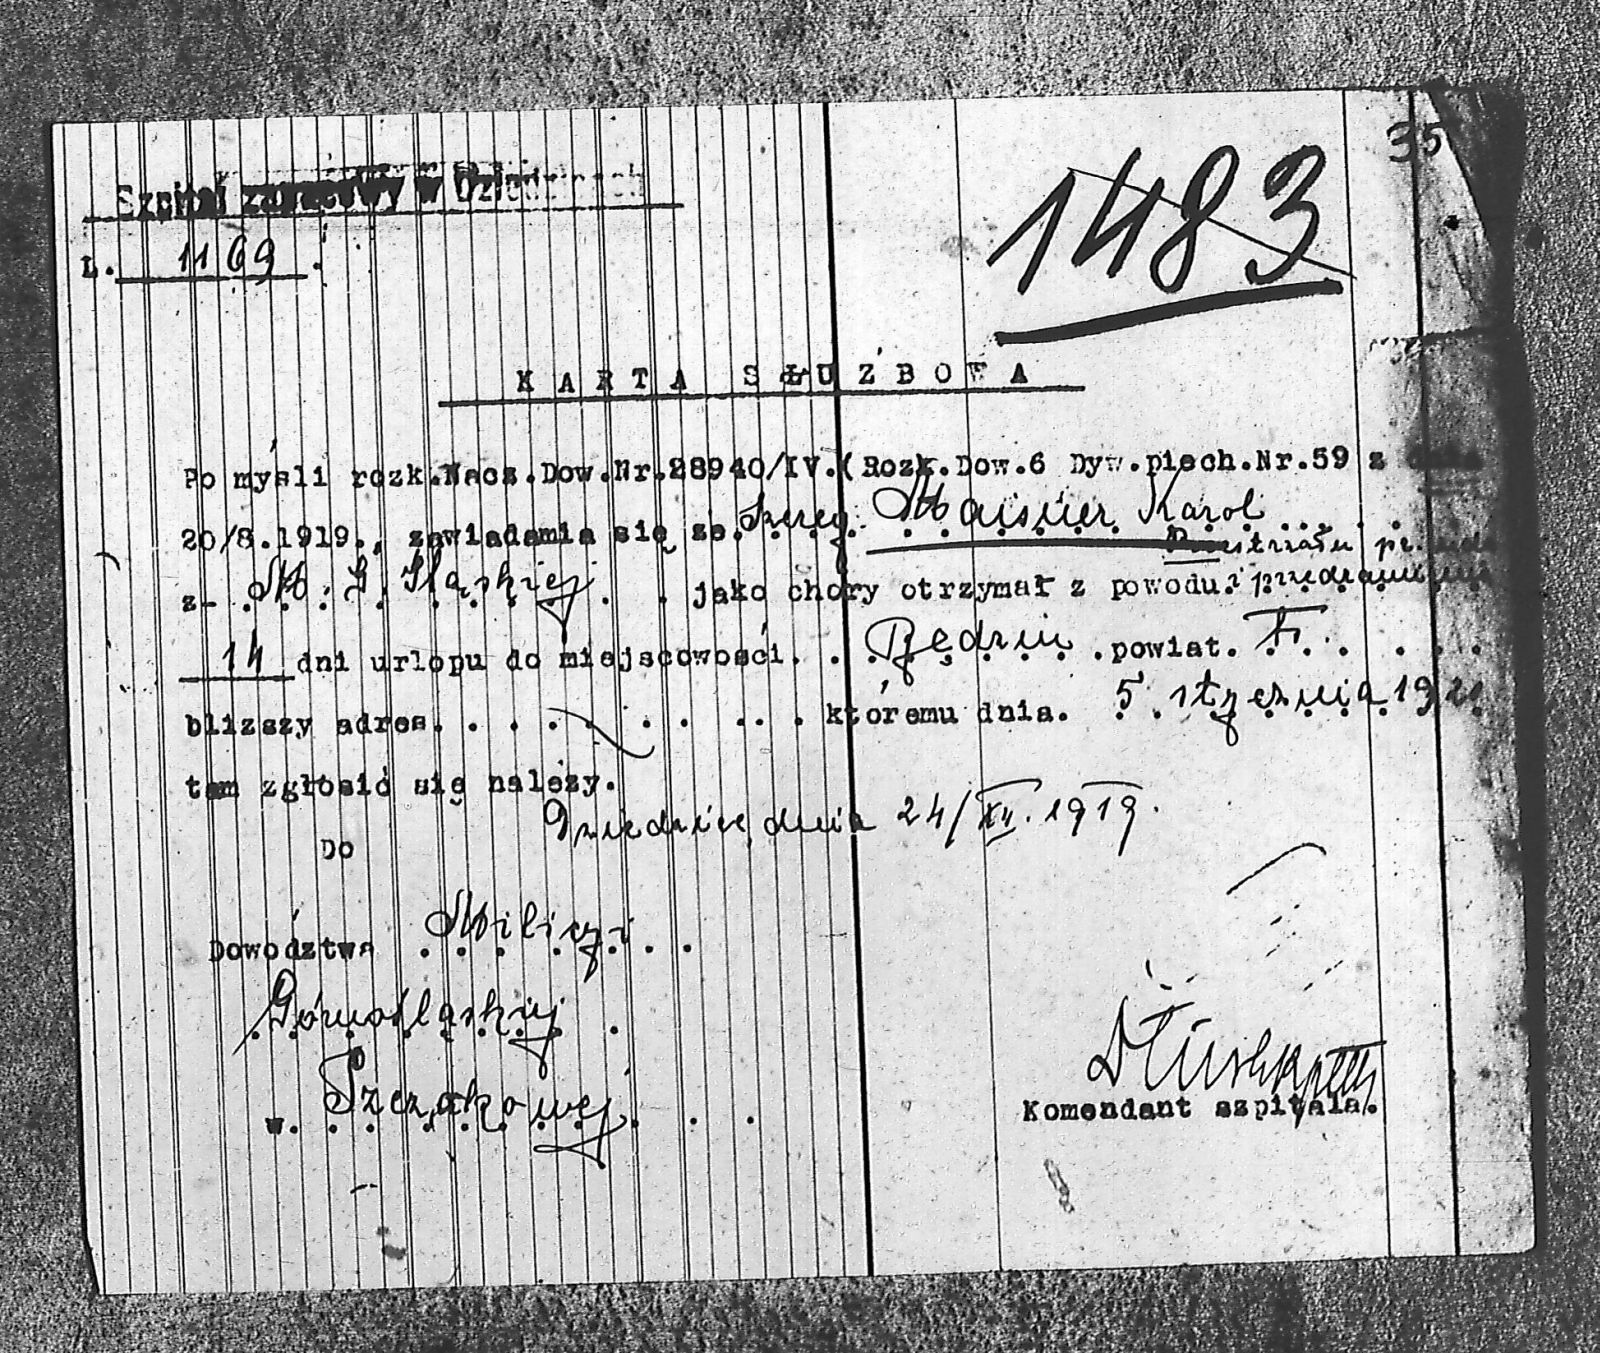 35
1483
Szpital zapasowy w Dziedzicach
L. 1169.
KARTA SŁUŻBOWA
Po myśli rozk.Nacz.Dow.Nr.28940/IV.(Rozk.Dow.6 Dyw.piech.Nr.59 z dnia
20/8.1919., zawiadamia się że Szereg. Maisner Karol
Postrzału pr.
z- M. G. Śląskiej jako chory otrzymał z powodu
14 dni urlopu do miejscowości Będzin powiat.
bliższy adres. któremu dnia. 5. stycznia 1920
tam zgłosić się należy.
Dziedzice, dnia 24/XII. 1919.
Do
Dowództwa Milicyi
Górnośląskiej
w. Szczakowej
Komendant szpitala.